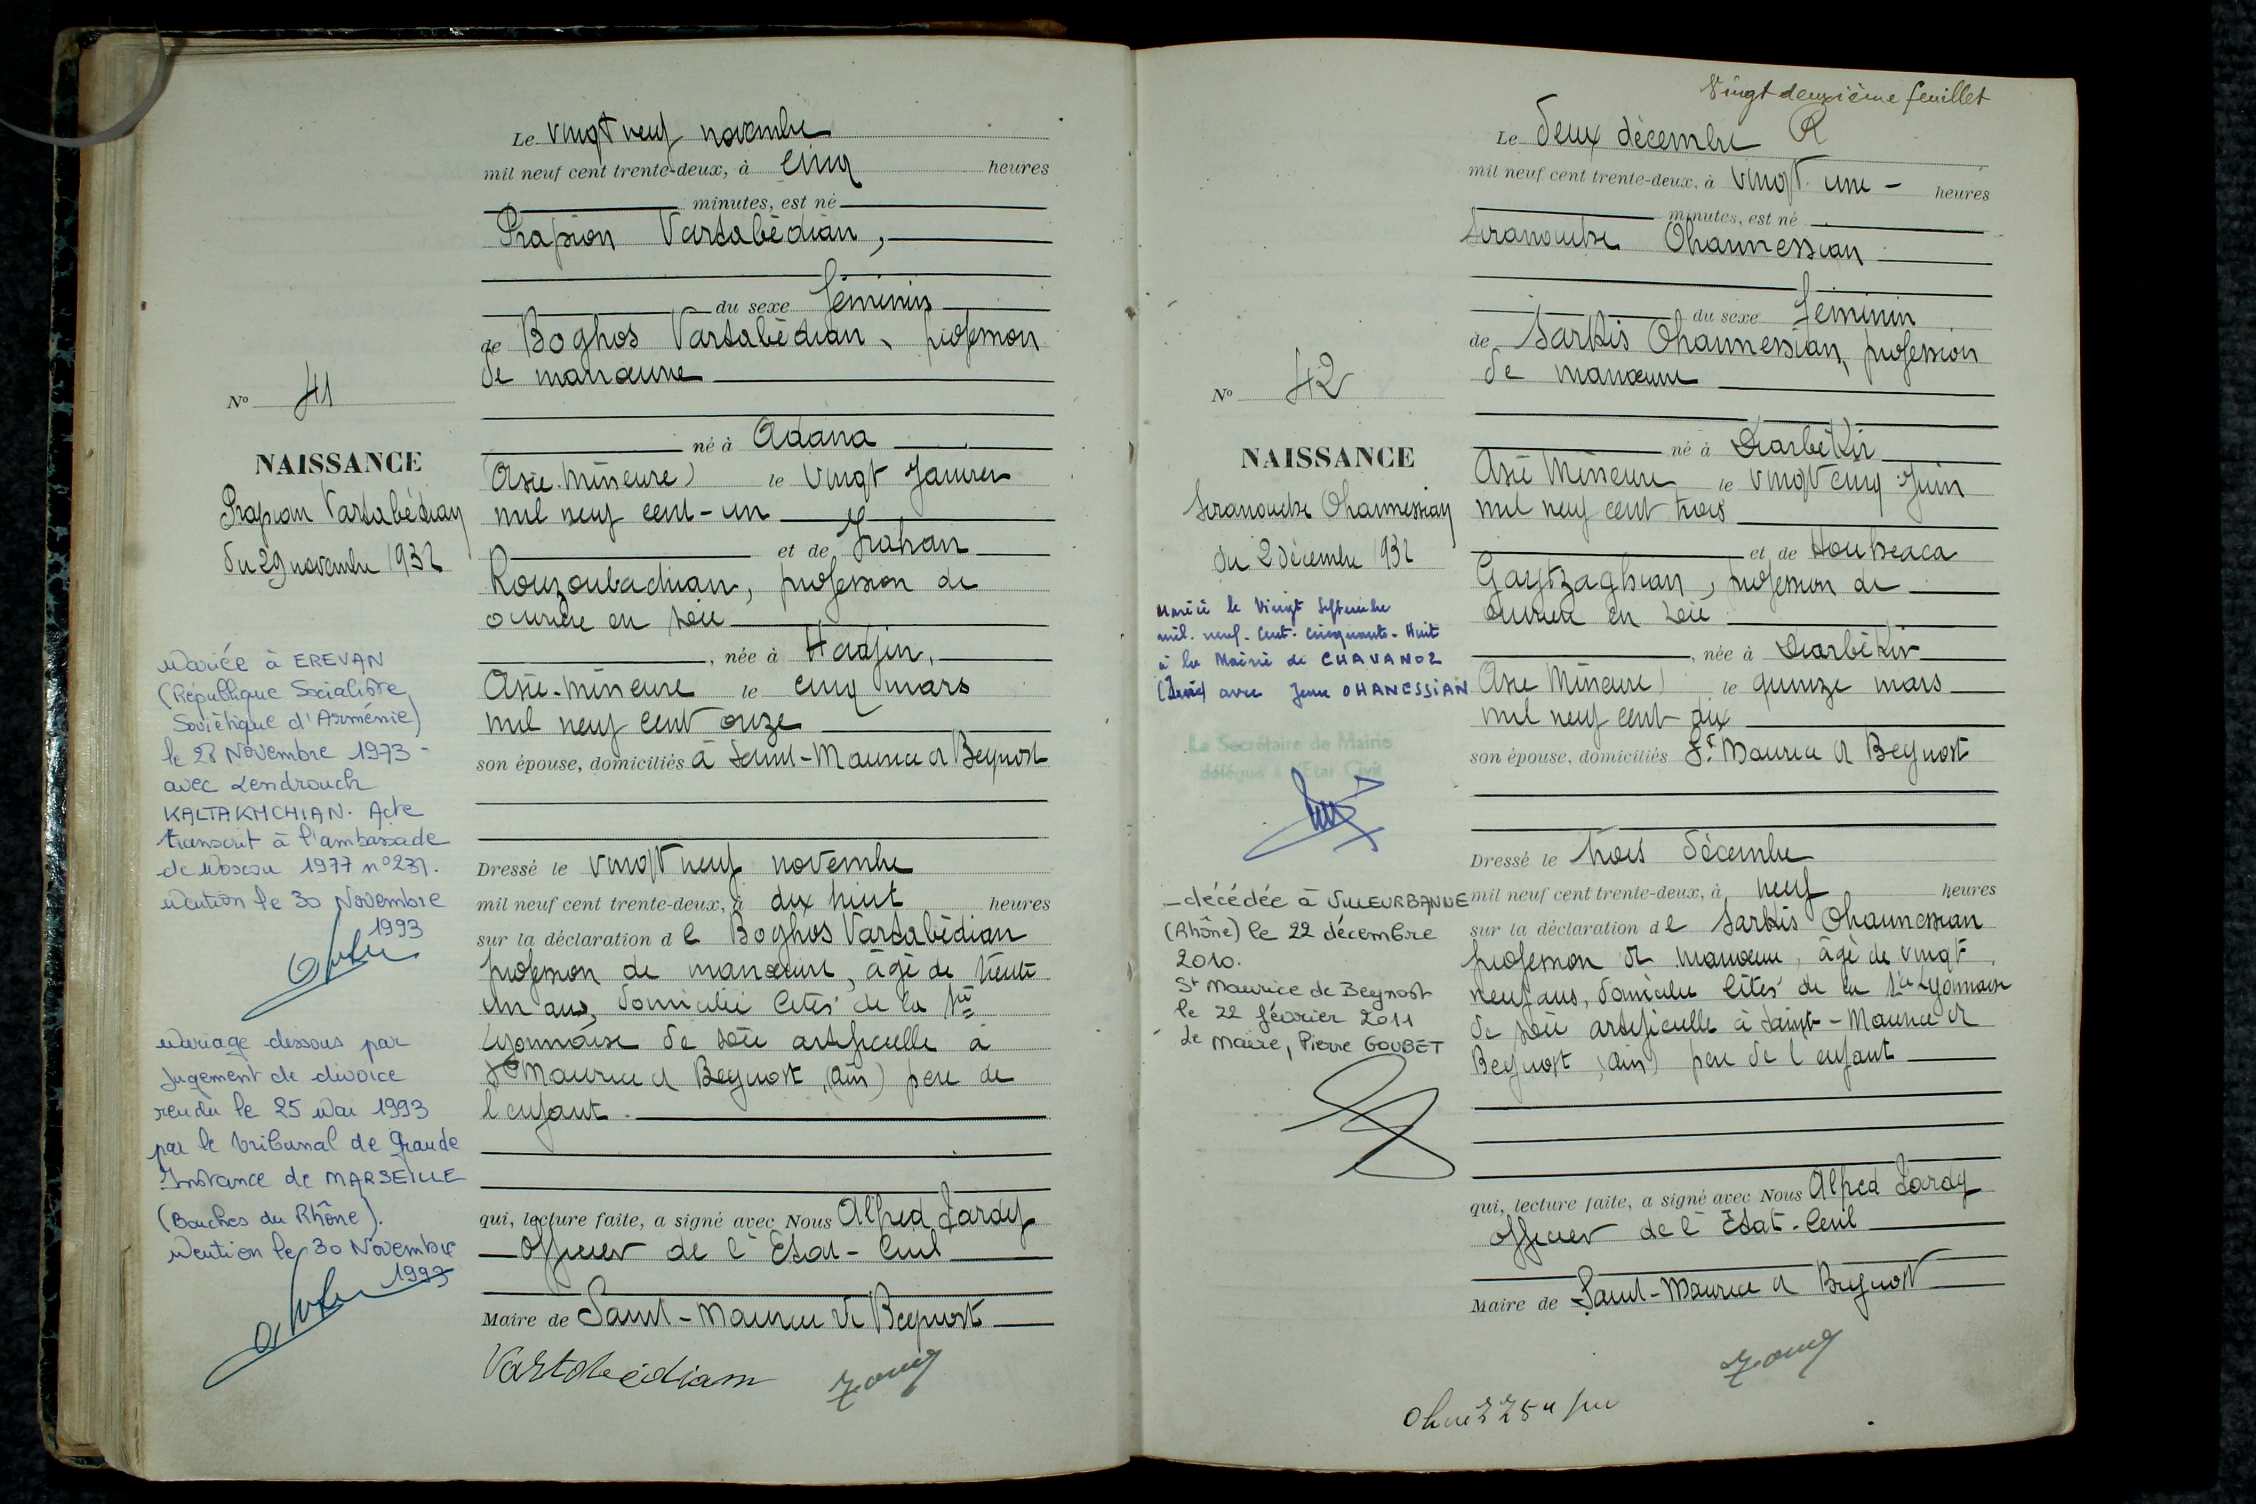 Le vingt neuf novembre
mil neuf cent trente-deux, à cinq heures
minutes, est né
Prapion Vartabédian,
du sexe féminin
de Boghos Vartabédian, profession
de manœuvre
N° 41
né à Adana
NAISSANCE
(Asie-Mineure) le vingt Janvier
Prapion Vartabédian
mil neuf cent-un
du 29 novembre 1932
et de
Rouzoubadjian, profession de
ouvrière en soie
, née à Hadjin,
Asie-Mineure le cinq mars
mil neuf cent onze
son épouse, domiciliés à Saint-Maurice de Beynost
Mariée à EREVAN
(République Socialiste
Soviétique d'Arménie)
le 28 Novembre 1973 -
avec Lendrouch
KALTAKHCHIAN. Acte
transcrit à l'ambassade
de Moscou 1977 n° 237.
Mention le 30 Novembre
1993
Dressé le vingt neuf novembre
mil neuf cent trente-deux, à dix huit heures
sur la déclaration de Boghos Vartabédian
profession de manœuvre, âgé de trente
un ans, domicilié Cités de la Sté
Lyonnaise de soie artificielle à
St Maurice de Beynost, (Ain) père de
l'enfant.
Mariage dessous par
jugement de divorce
rendu le 25 Mai 1993
par le tribunal de Grande
Instance de MARSEILLE
(Bouches du Rhône).
Mention le 30 Novembre
1993
qui, lecture faite, a signé avec Nous Alfred Jardy
officier de l'Etat-Civil
Maire de Saint-Maurice de Beynost
Vartabédiam
Vingt deuxième feuillet
Le deux décembre
mil neuf cent trente-deux, à vingt une - heures
minutes, est né
Siranouche Ohannessian
du sexe féminin
de Sarkis Ohannessian, profession
de manœuvre
N° 42
né à Diarbékir
NAISSANCE
Asie Mineure le vingt cinq Juin
Siranouche Ohannessian
mil neuf cent trois
du 2 décembre 1932
et de
profession de
ouvrière en soie
, née à Diarbékir
Asie Mineure) le quinze mars
mil neuf cent dix
son épouse, domiciliés St Maurice de Beynost
Mariée le Vingt Septembre
mil-neuf-Cent-Cinquante-Huit
à la Mairie de CHAVANOZ
(Isère) avec Jean OHANESSIAN
Le Secrétaire de Mairie
délégué à l'Etat Civil
- décédée à VILLEURBANNE
(Rhône) le 22 décembre
2010.
St Maurice de Beynost
le 22 février 2011
Le Maire, Pierre GOUBET
Dressé le trois décembre
mil neuf cent trente-deux, à neuf heures
sur la déclaration de Sarkis Ohannessian
profession de manœuvre, âgé de vingt
neuf ans, domicilié Cités de la Sté Lyonnaise
de soie artificielle à Saint-Maurice de
Beynost, (Ain) père de l'enfant
qui, lecture faite, a signé avec Nous Alfred Jardy
officier de l'Etat-Civil
Maire de Saint-Maurice de Beynost